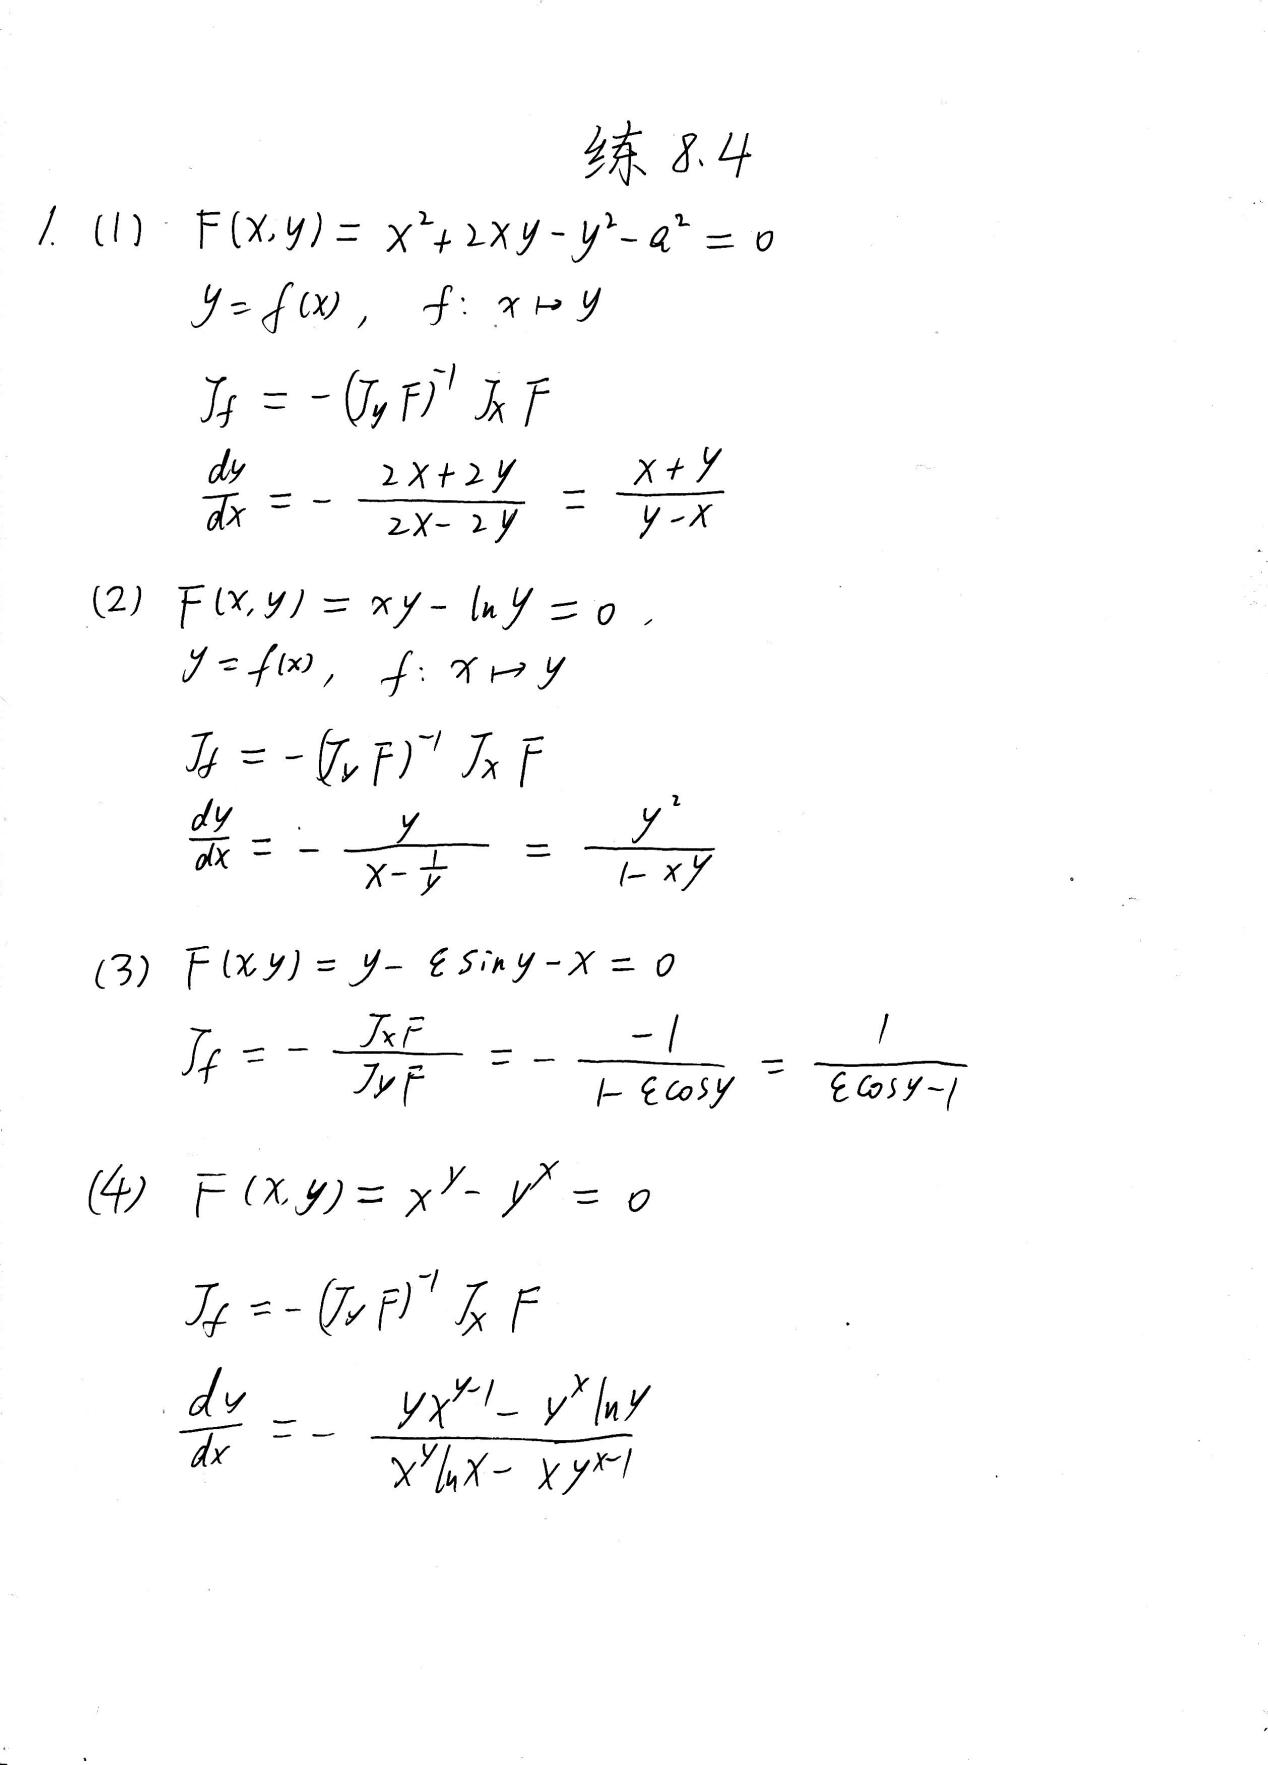 练 8.4
1. (1) F(x,y) = x²+2xy-y²-a² = 0
y=f(x), f: x↦y
J_f = -(J_y F)⁻¹ J_x F
dy/dx = - (2x+2y)/(2x-2y) = (x+y)/(y-x)
(2) F(x,y) = xy - ln y = 0,
y=f(x), f: x↦y
J_f = -(J_y F)⁻¹ J_x F
dy/dx = - y/(x-1/y) = y²/(1-xy)
(3) F(x,y) = y-ε sin y-x = 0
J_f = - (J_x F)/(J_y F) = - (-1)/(1-ε cos y) = 1/(ε cos y-1)
(4) F(x,y) = x^y - y^x = 0
J_f = -(J_y F)⁻¹ J_x F
dy/dx = - (yx^(y-1) - y^x ln y)/(x^y ln x - xy^(x-1))